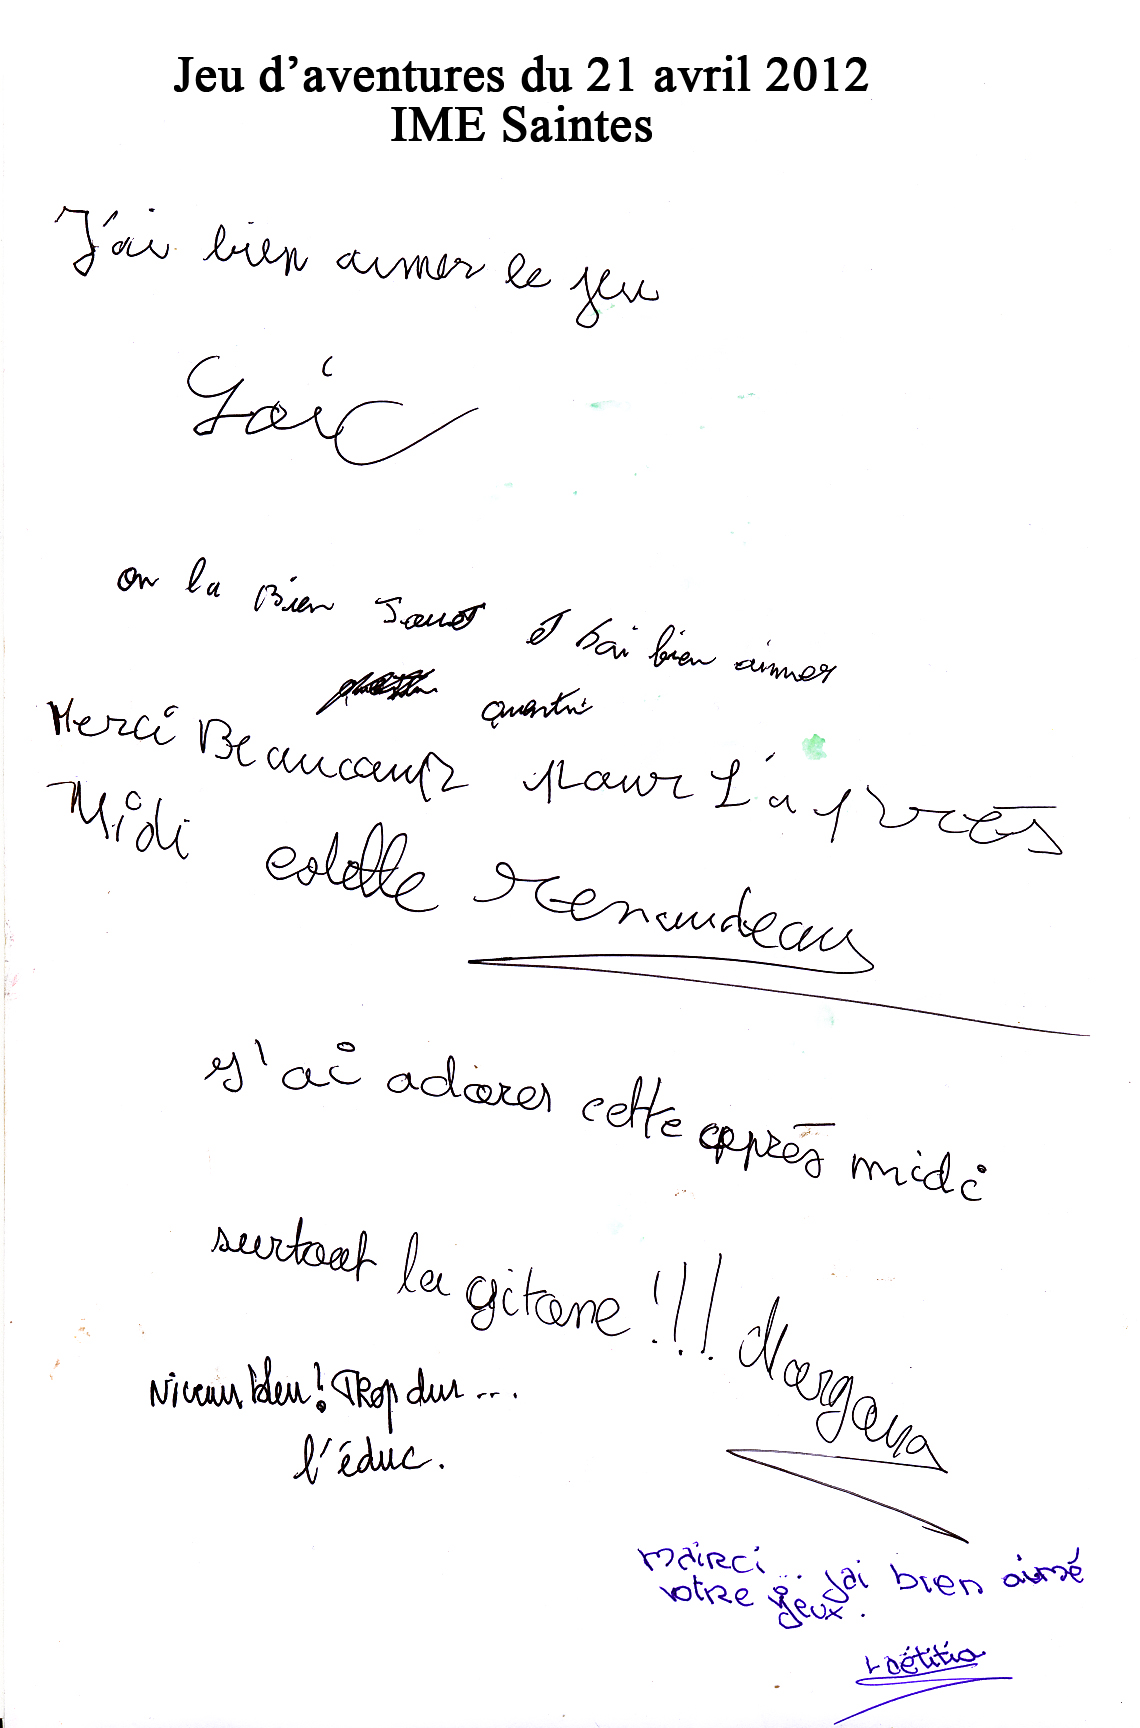 Jeu d'aventures du 21 avril 2012
IME Saintes
J'ai bien aimer le jeu
Loic
on la Bien Joues et bai bien aimer
quentin
Merci Beaucoup pour L'après
Midi colette Renaudeau
J'ai adorer cette apprés midi
surtout la gitane !!! Morgana
Niveau bleu! TRop dur ...
l'éduc.
mairci... Jai bien aimé
votre jeux.
Laëtitia